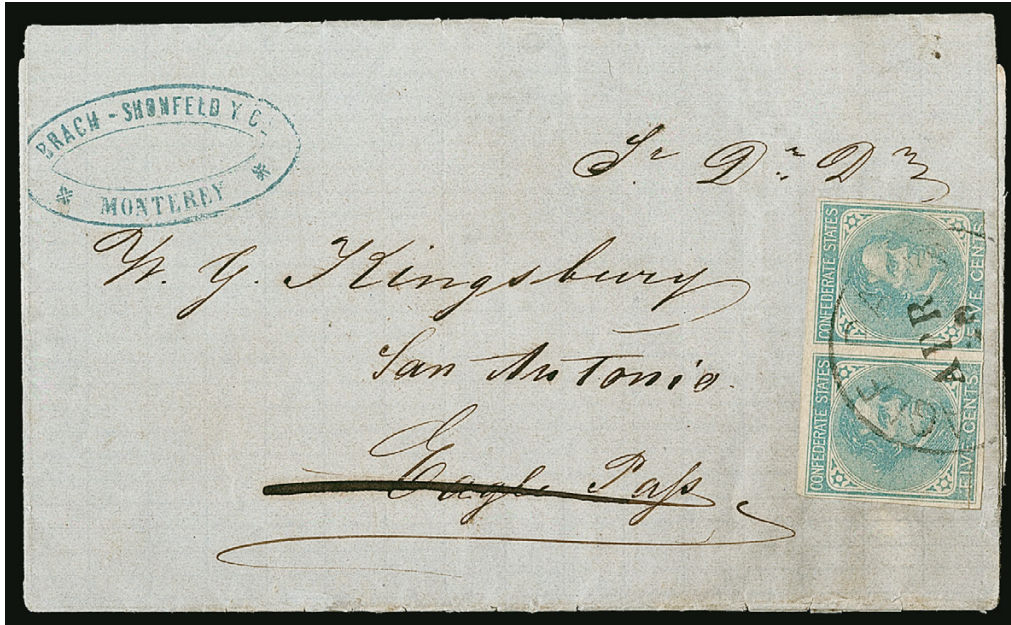 BRACH - SHONFELD Y Cª
MONTEREY
Sr Dn Dn
W. G. Kingsbury
San Antonio.
Eagle Pass
CONFEDERATE STATES
FIVE CENTS
APR
CONFEDERATE STATES
FIVE CENTS